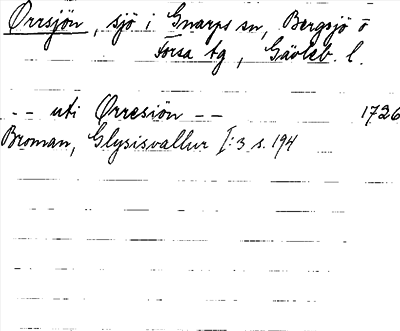 Örrsjön, sjö i Gnarps sn, Bergsjö o
Forsa tg, Gävleb. l.
-- uti Örresiön -- 1726
Broman, Glysisvallur I:3 s. 194